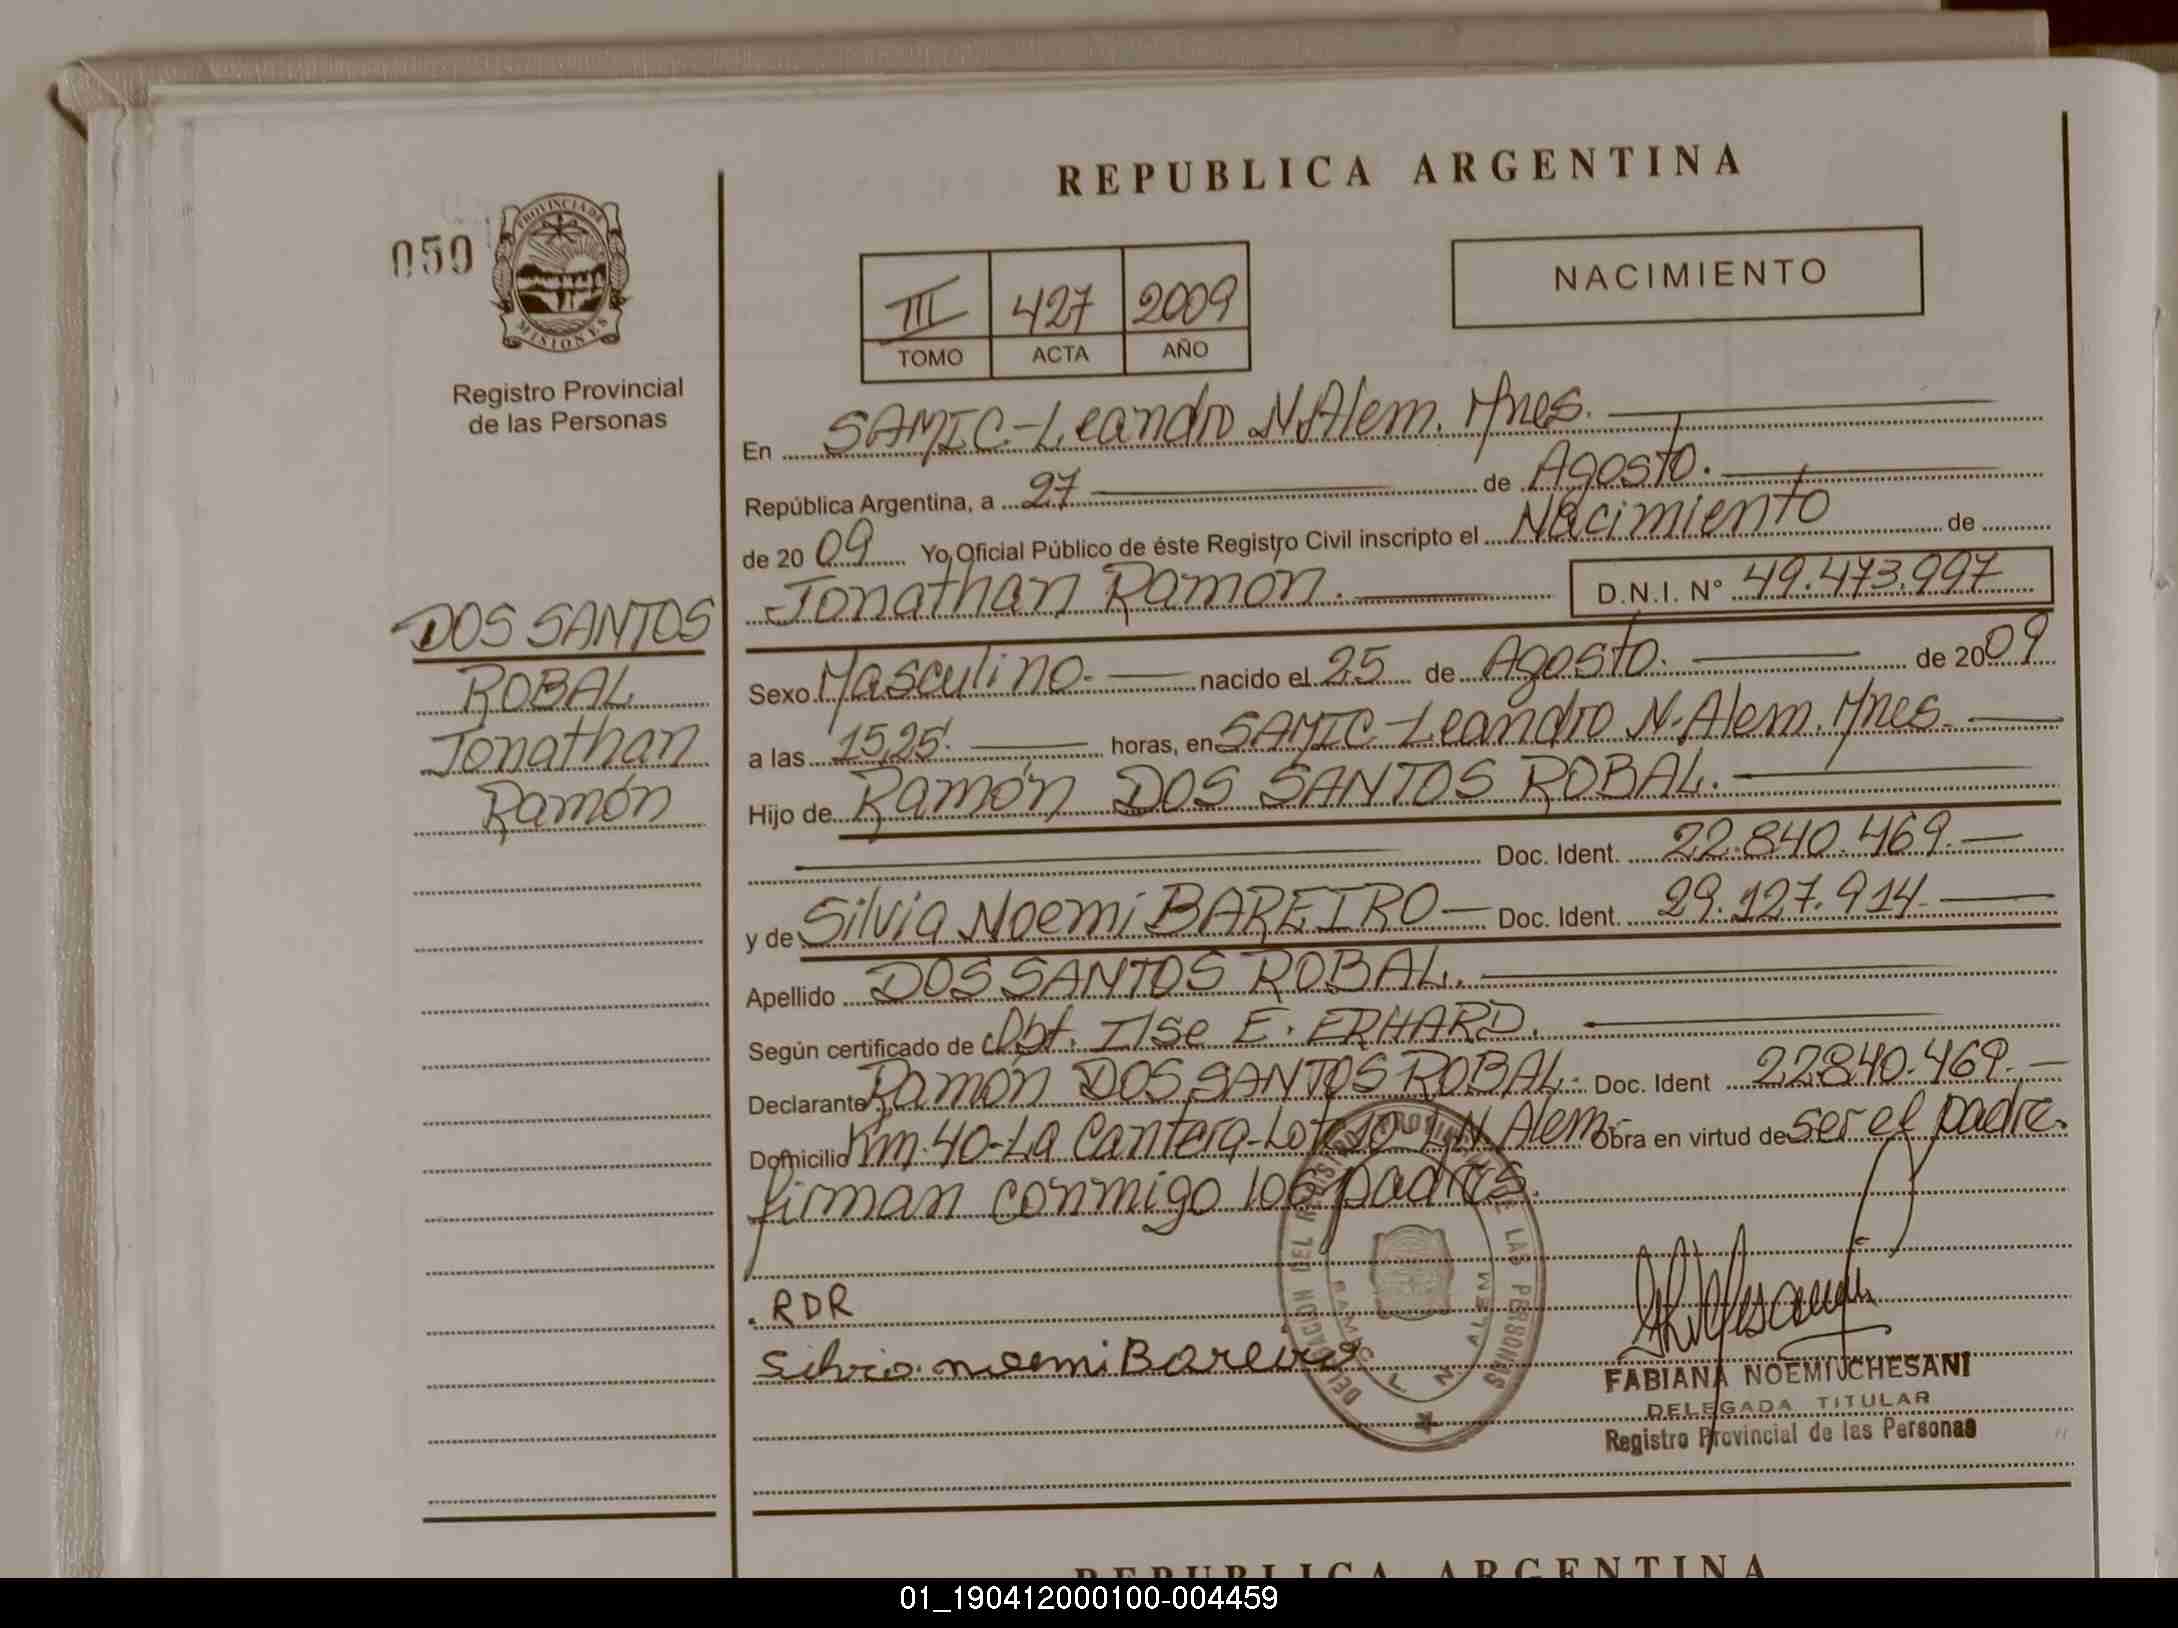 REPUBLICA ARGENTINA
050
PROVINCIA DE
MISIONES
Registro Provincial
de las Personas
III 427 2009
TOMO ACTA AÑO
NACIMIENTO
DOS SANTOS
ROBAL
Jonathan
Ramón
En SAMIC-Leandro N. Alem. Mnes.
República Argentina, a 27 de Agosto.
de 2009 Yo, Oficial Público de éste Registro Civil inscripto el Nacimiento de
Jonathan Ramón. D.N.I. N° 49.473.997
Sexo Masculino. nacido el 25 de Agosto. de 2009
a las 15,25. horas, en SAMIC-Leandro N. Alem. Mnes.
Hijo de Ramón DOS SANTOS ROBAL.
Doc. Ident. 22.840.469.
y de Silvia Noemi BAREIRO Doc. Ident. 29.127.914.
Apellido DOS SANTOS ROBAL.
Según certificado de Obt. Ilse E. ERHARD.
Declarante Ramón DOS SANTOS ROBAL. Doc. Ident 22840.469.
Domicilio Km. 40-La Cantera-Lote 10-L.N. Alem. Obra en virtud de ser el padre.
firman conmigo los padres.
. RDR
Silvia noemi Bareiro
DELEGACION DEL REGISTRO PROVINCIAL DE LAS PERSONAS
SAMIC L N ALEM
FABIANA NOEMI UCHESANI
DELEGADA TITULAR
Registro Provincial de las Personas
REPUBLICA ARGENTINA
01_190412000100-004459